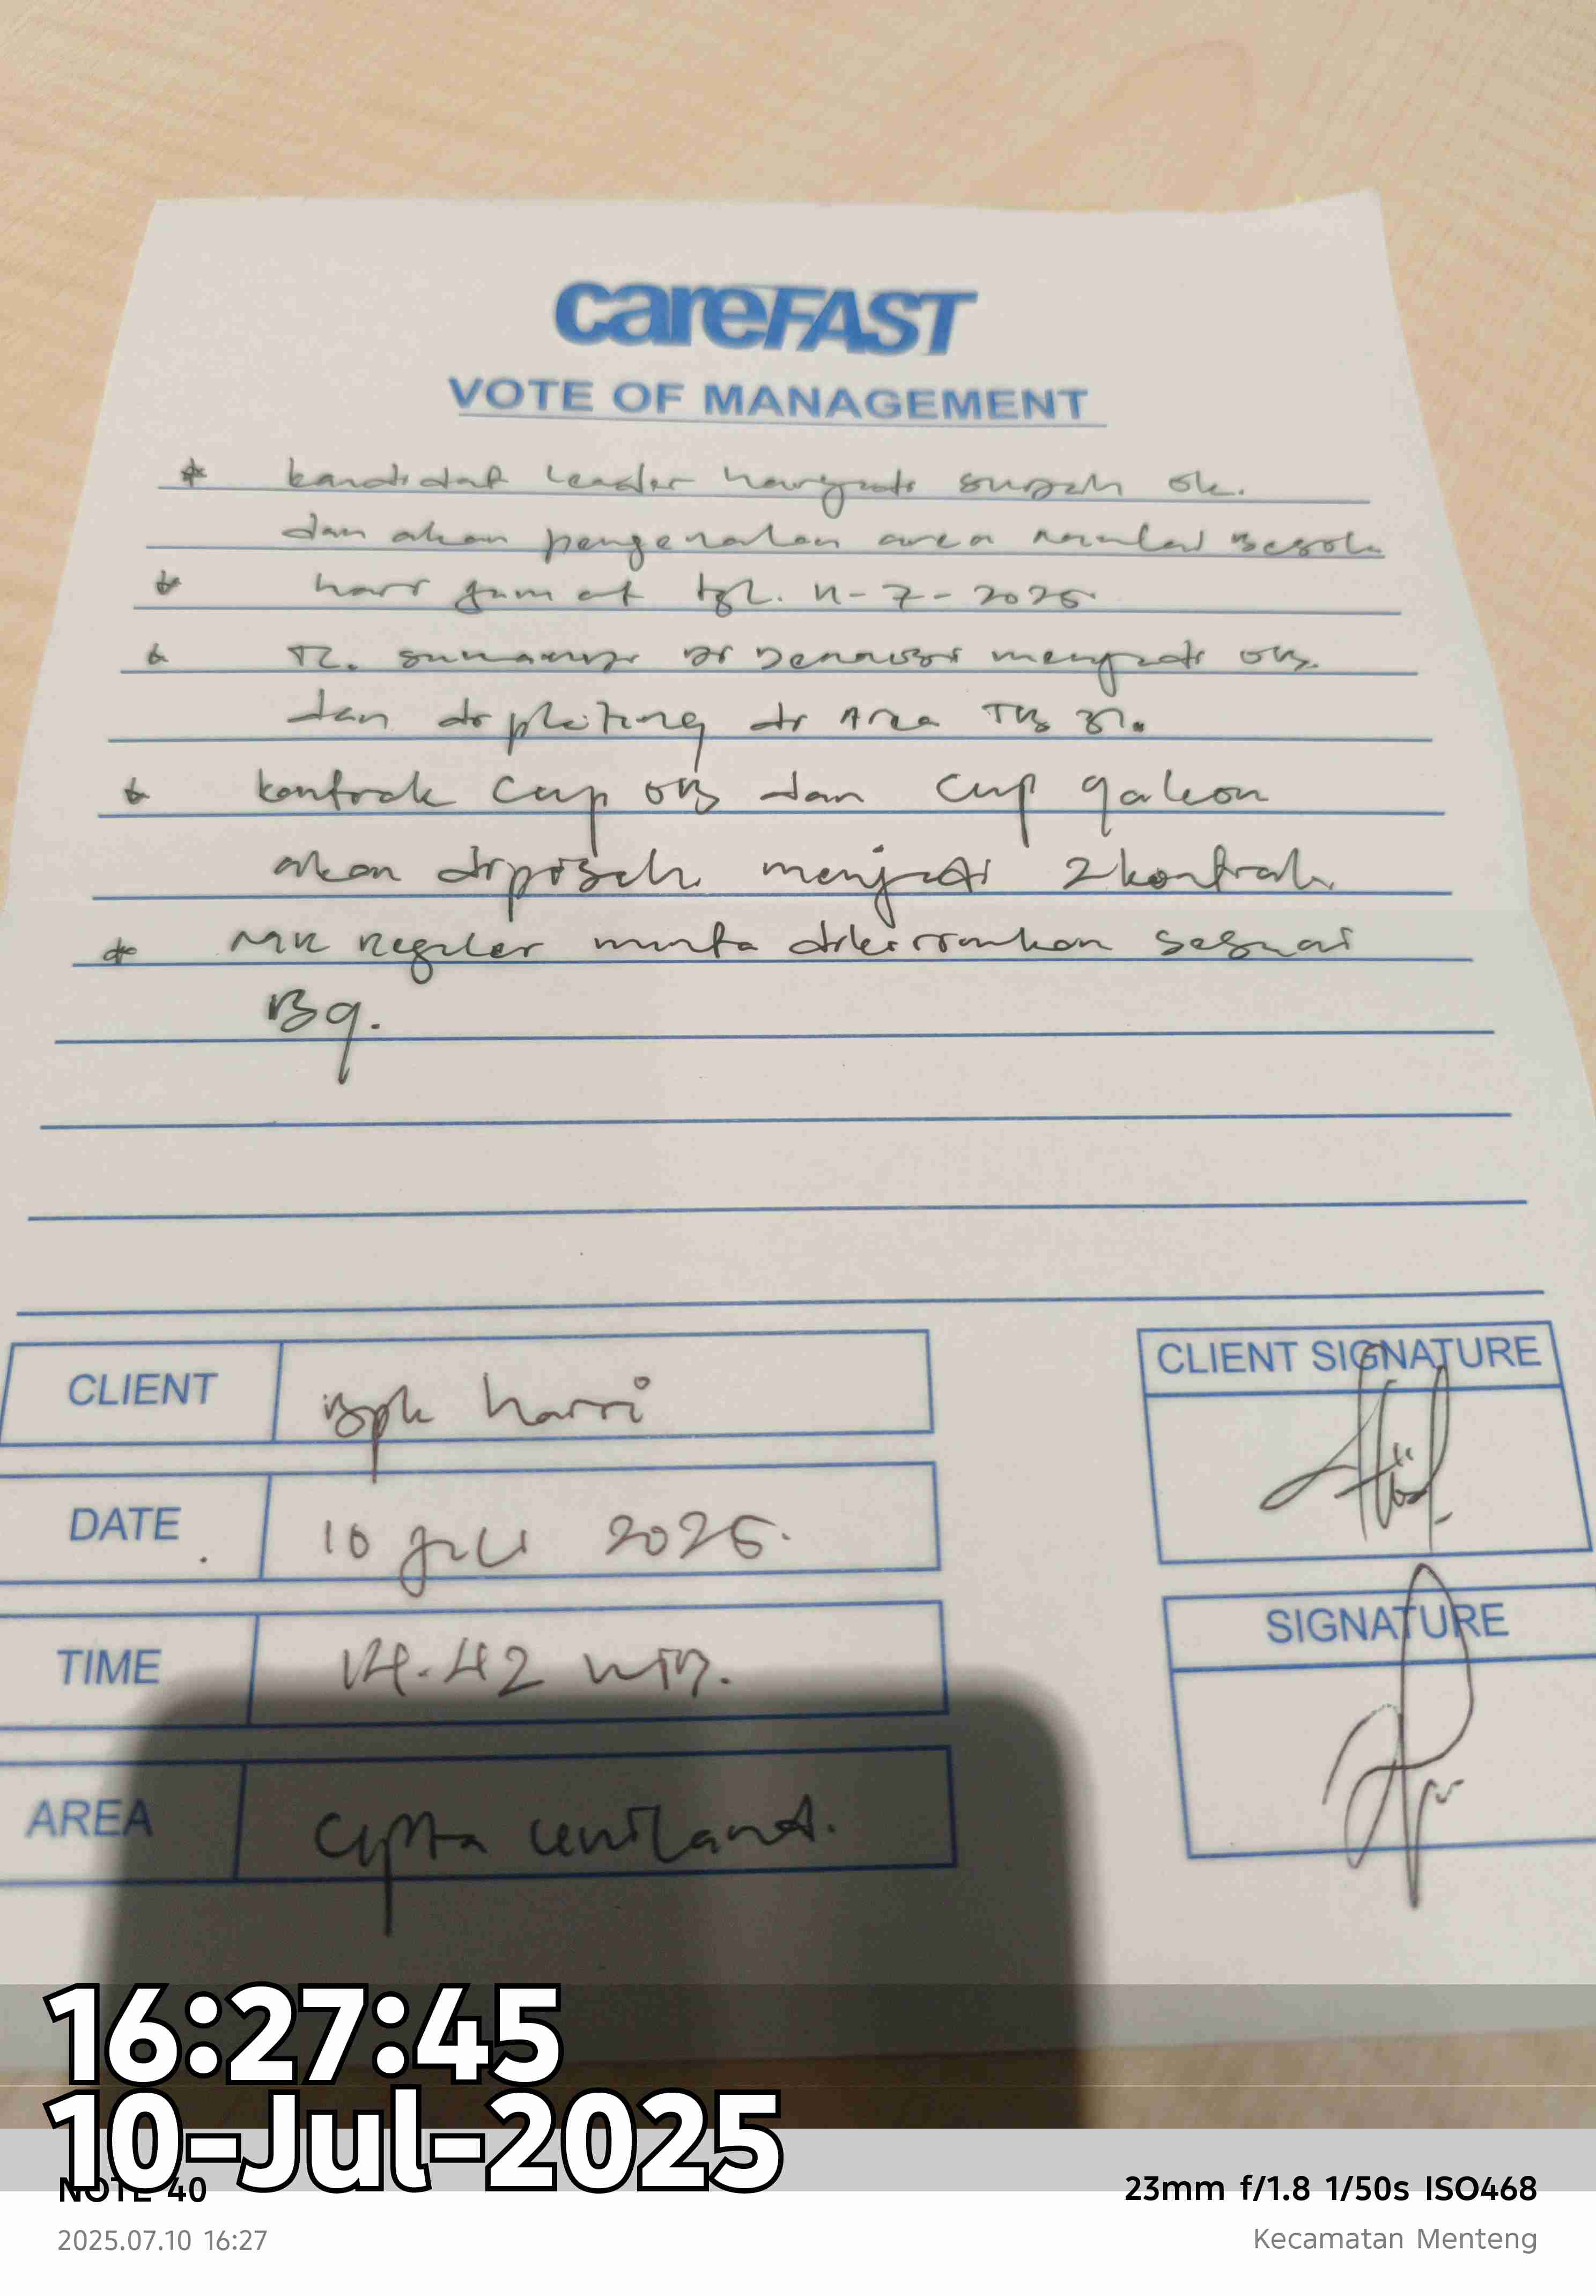 careFAST
VOTE OF MANAGEMENT
* kandidat leader sudah ok.
dan akan pengenalan area mulai besok
* hari jumat tgl. 11-7-2025
* TL. di menjadi OB.
dan di ploting di Area TB 31.
* kontrak Cup OB dan Cup galon
akan dipisah menjadi 2 kontrak
* MR Reguler minta dikirimkan sesuai
Bq.
CLIENT
Bpk harri
DATE
10 juli 2025.
TIME
14.42 WIB.
AREA
Cipta uniland.
CLIENT SIGNATURE
SIGNATURE
16:27:45
10-Jul-2025
NOTE 40
23mm f/1.8 1/50s ISO468
2025.07.10 16:27
Kecamatan Menteng